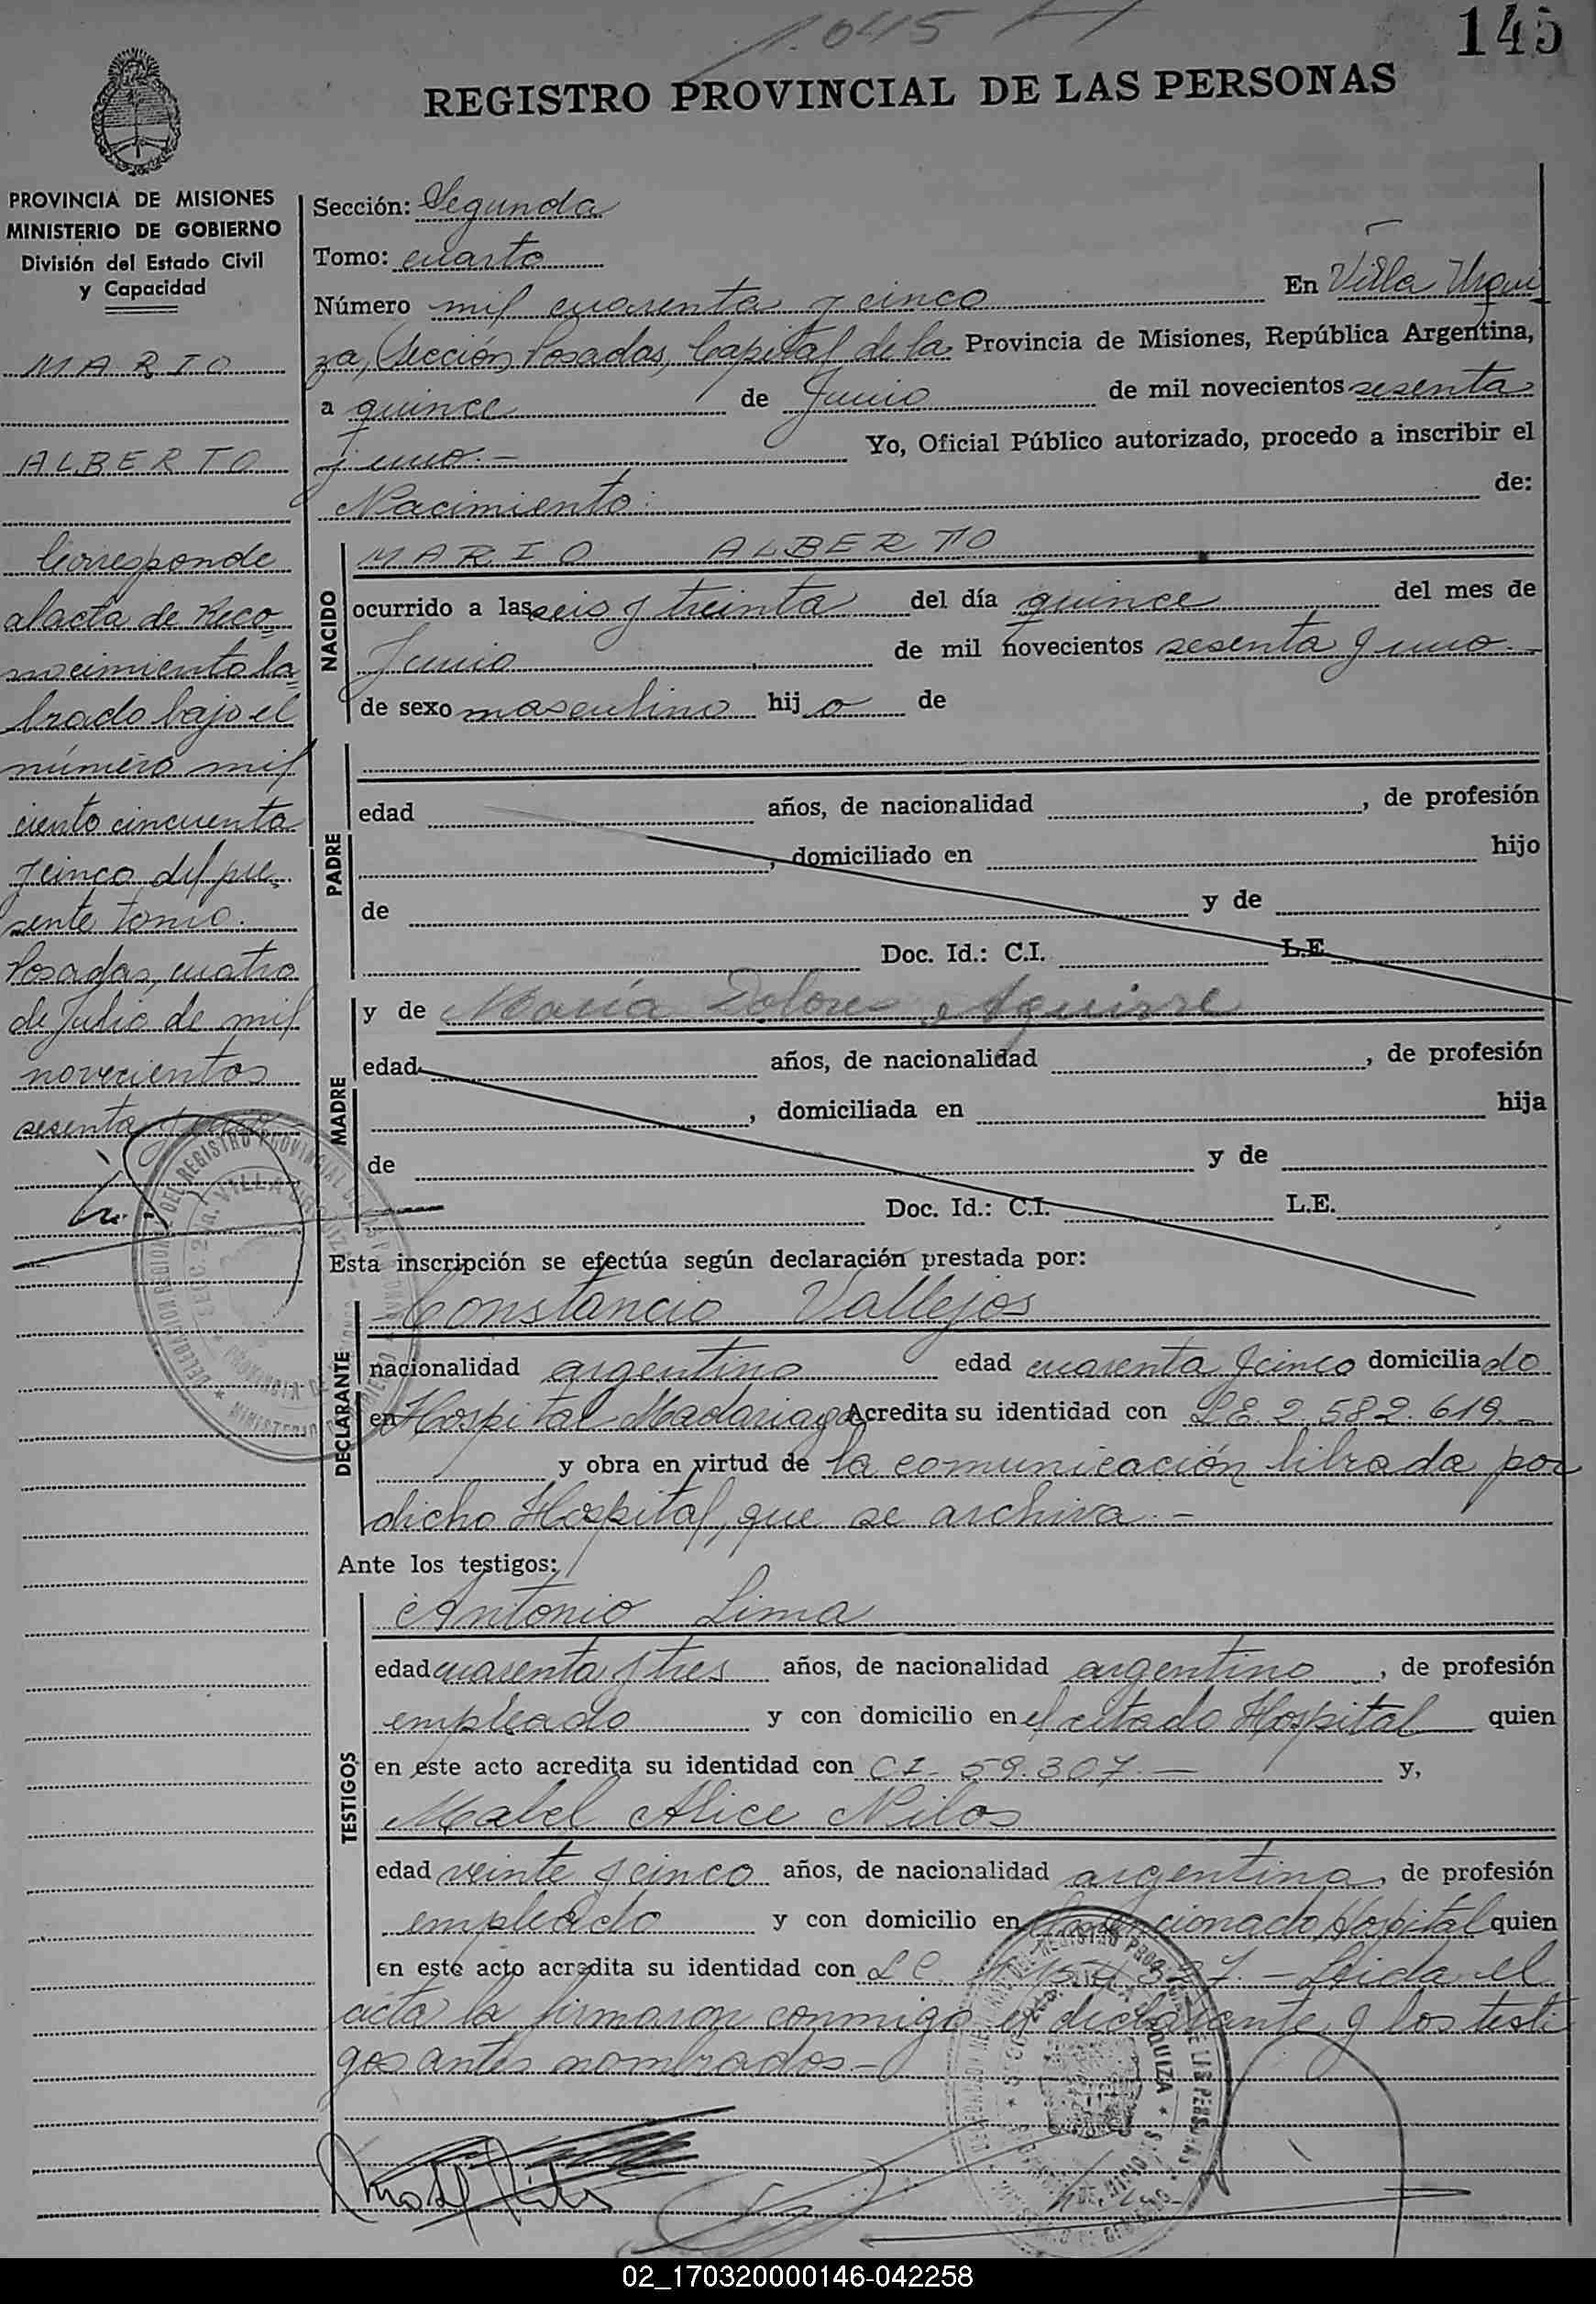 1.045
145
REGISTRO PROVINCIAL DE LAS PERSONAS
PROVINCIA DE MISIONES
MINISTERIO DE GOBIERNO
División del Estado Civil
y Capacidad
MARIO
ALBERTO
Corresponde
al acta de Reco-
nocimiento la=
brado bajo el
número mil
ciento cincuenta
y cinco del pre-
sente tomo.
Posadas, cuatro
de Julio de mil
novecientos
sesenta y uno
Sección: Segunda
Tomo: cuarto
Número mil cuarenta y cinco En Villa Urqui
za, Sección Posadas, Capital de la Provincia de Misiones, República Argentina,
a quince de Junio de mil novecientos sesenta
y uno.- Yo, Oficial Público autorizado, procedo a inscribir el
Nacimiento: de:
NACIDO
MARIO ALBERTO
ocurrido a las seis y treinta del día quince del mes de
Junio de mil novecientos sesenta y uno.-
de sexo masculino hijo de
PADRE
edad años, de nacionalidad , de profesión
, domiciliado en hijo
de y de
Doc. Id.: C.I. L.E.
MADRE
y de María Dolores Aguirre
edad años, de nacionalidad , de profesión
, domiciliada en hija
de y de
Doc. Id.: C.I. L.E.
Esta inscripción se efectúa según declaración prestada por:
DECLARANTE
Constancio Vallejos
nacionalidad argentino edad cuarenta y cinco domiciliado
en Hospital Madariaga Acredita su identidad con L.E. 2.582.619.-
y obra en virtud de la comunicación librada por
dicho Hospital, que se archiva.-
Ante los testigos:
TESTIGOS
Antonio Lima
edad cuarenta y tres años, de nacionalidad argentino, de profesión
empleado y con domicilio en el citado Hospital quien
en este acto acredita su identidad con C.I. 59.307.- y,
Mabel Alice Nilos
edad veinte y cinco años, de nacionalidad argentina, de profesión
empleado y con domicilio en mencionado Hospital quien
en este acto acredita su identidad con L.C. - Leida el
acta la firmaron conmigo el declarante y los testi
gos antes nombrados.-
02_170320000146-042258